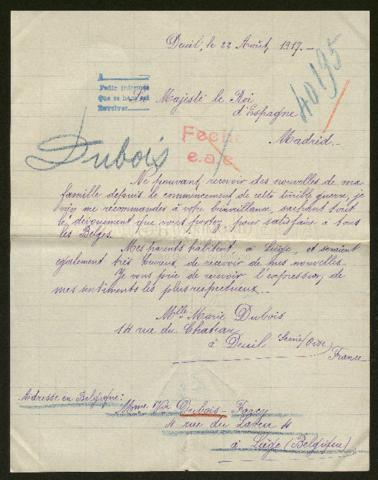 Deuil, le 22 Août, 1917.-
A
Pedir informes
Que se haga así
Resolver
40195
Sa Majesté le Roi
d'Espagne
Madrid.
Fecha
e.a.c.
Dubois
Ne pouvant recevoir des nouvelles de ma
famille depuis le commencement de cette terrible guerre, je
me recommander à votre bienveillance, sachant tout
le dévouement que vous portez, pour satisfaire à tous
les Belges.
Mes parents habitent, à Liège, et seraient
également très heureux de recevoir de mes nouvelles.
Je vous prie de recevoir l'expression de
mes sentiments les plus respectueux.
Mlle Marie Dubois
14 rue du Chateau
à Deuil Seine/Oise
France
Adresse en Belgique:
Mme Dubois-
4 rue du
à Liège (Belgique)